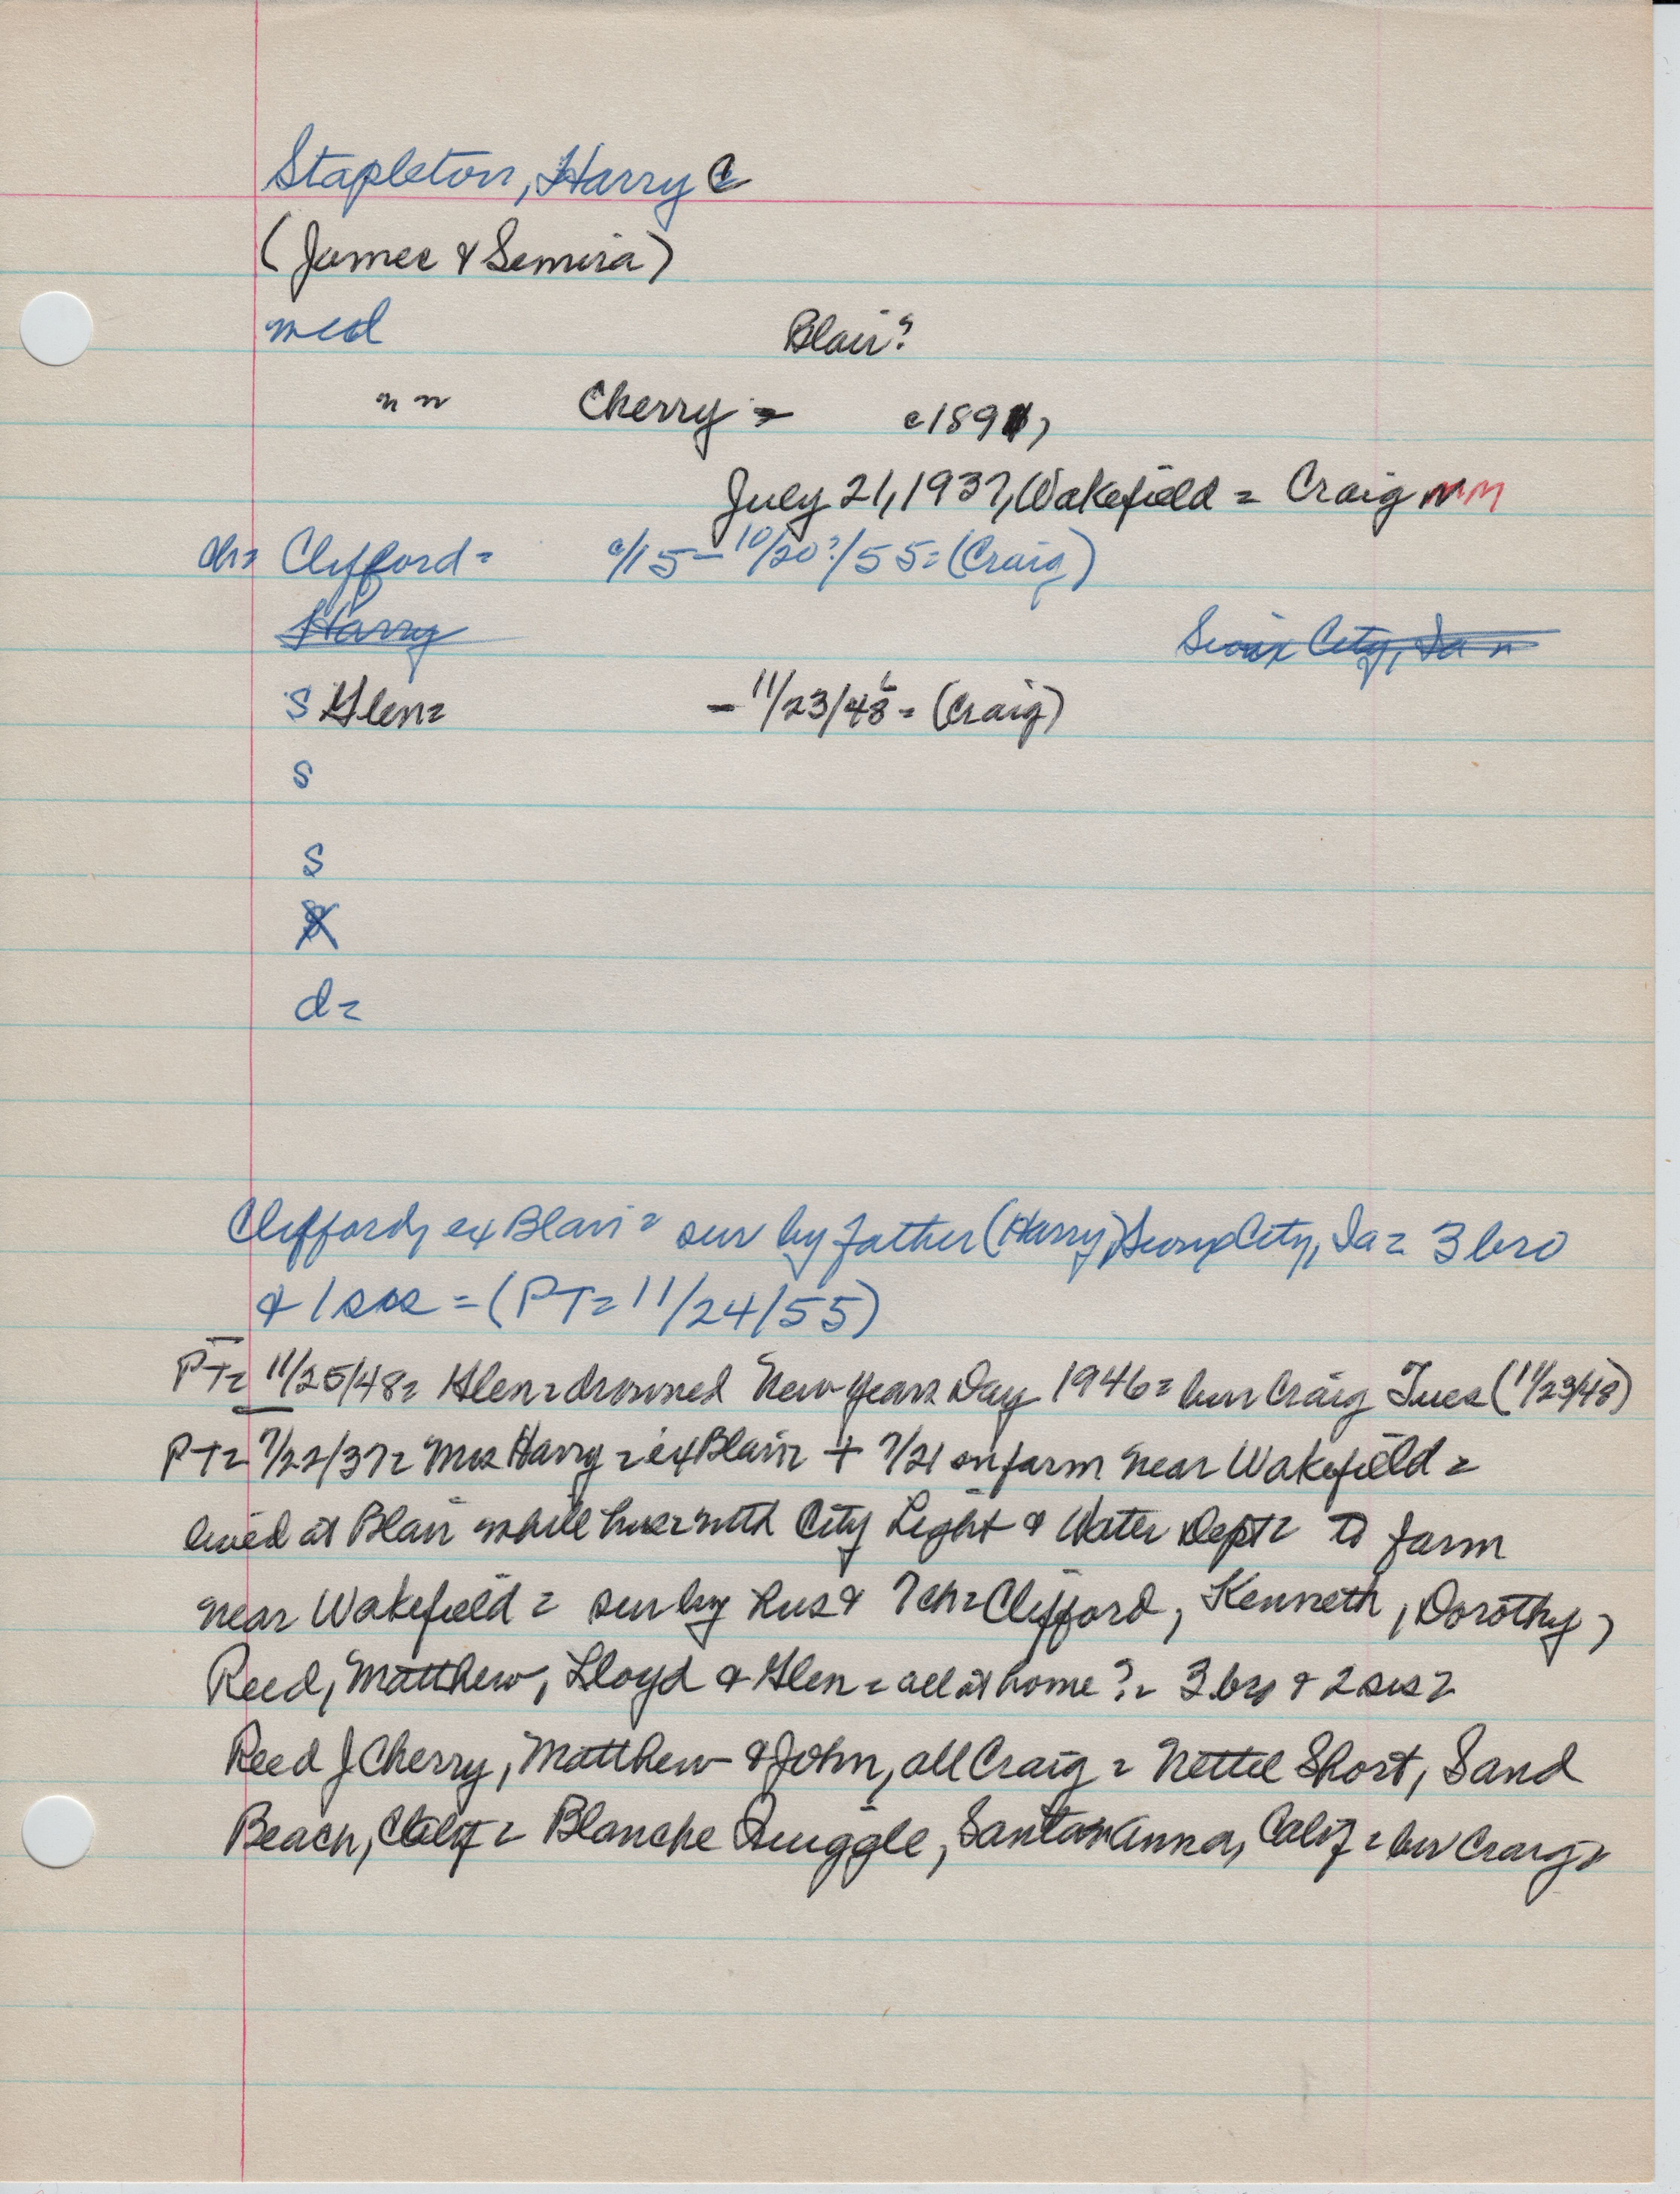 Stapleton, Harry C
(James & Semira)
med Blair?
" " Cherry = c1891,
July 21, 1937, Wakefield = Craig
ch= Clifford = c/15 – 10/20?/55 = (Craig)
Harry Sioux City, Ia
S Glen = – 11/23/48 = (Craig)
S
S
d =
Clifford, ex Blair = sur by father (Harry, Sioux City, Ia = 3 bro
& 1 sis = (PT = 11/24/55)
PT = 11/25/48 = Glen = drowned New Years Day 1946 = bur Craig Tues (11/23/48)
PT = 7/22/37 = Mrs Harry = ex Blair = + 7/21 on farm near Wakefield =
lived at Blair while hus = with City Light & Water Dept = to farm
near Wakefield = sur by hus & 7 ch = Clifford, Kenneth, Dorothy,
Reed, Matthew, Lloyd & Glen = all at home? = 3 bro & 2 sis =
Reed J Cherry, Matthew & John, all Craig = Nettie Short, Sand
Beach, Calif = Blanche Quiggle, Santa Anna, Calif = bur Craig =